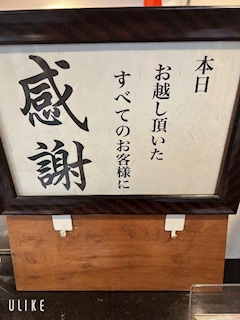 本日
お越し頂いた
すべてのお客様に
感謝
ULIKE